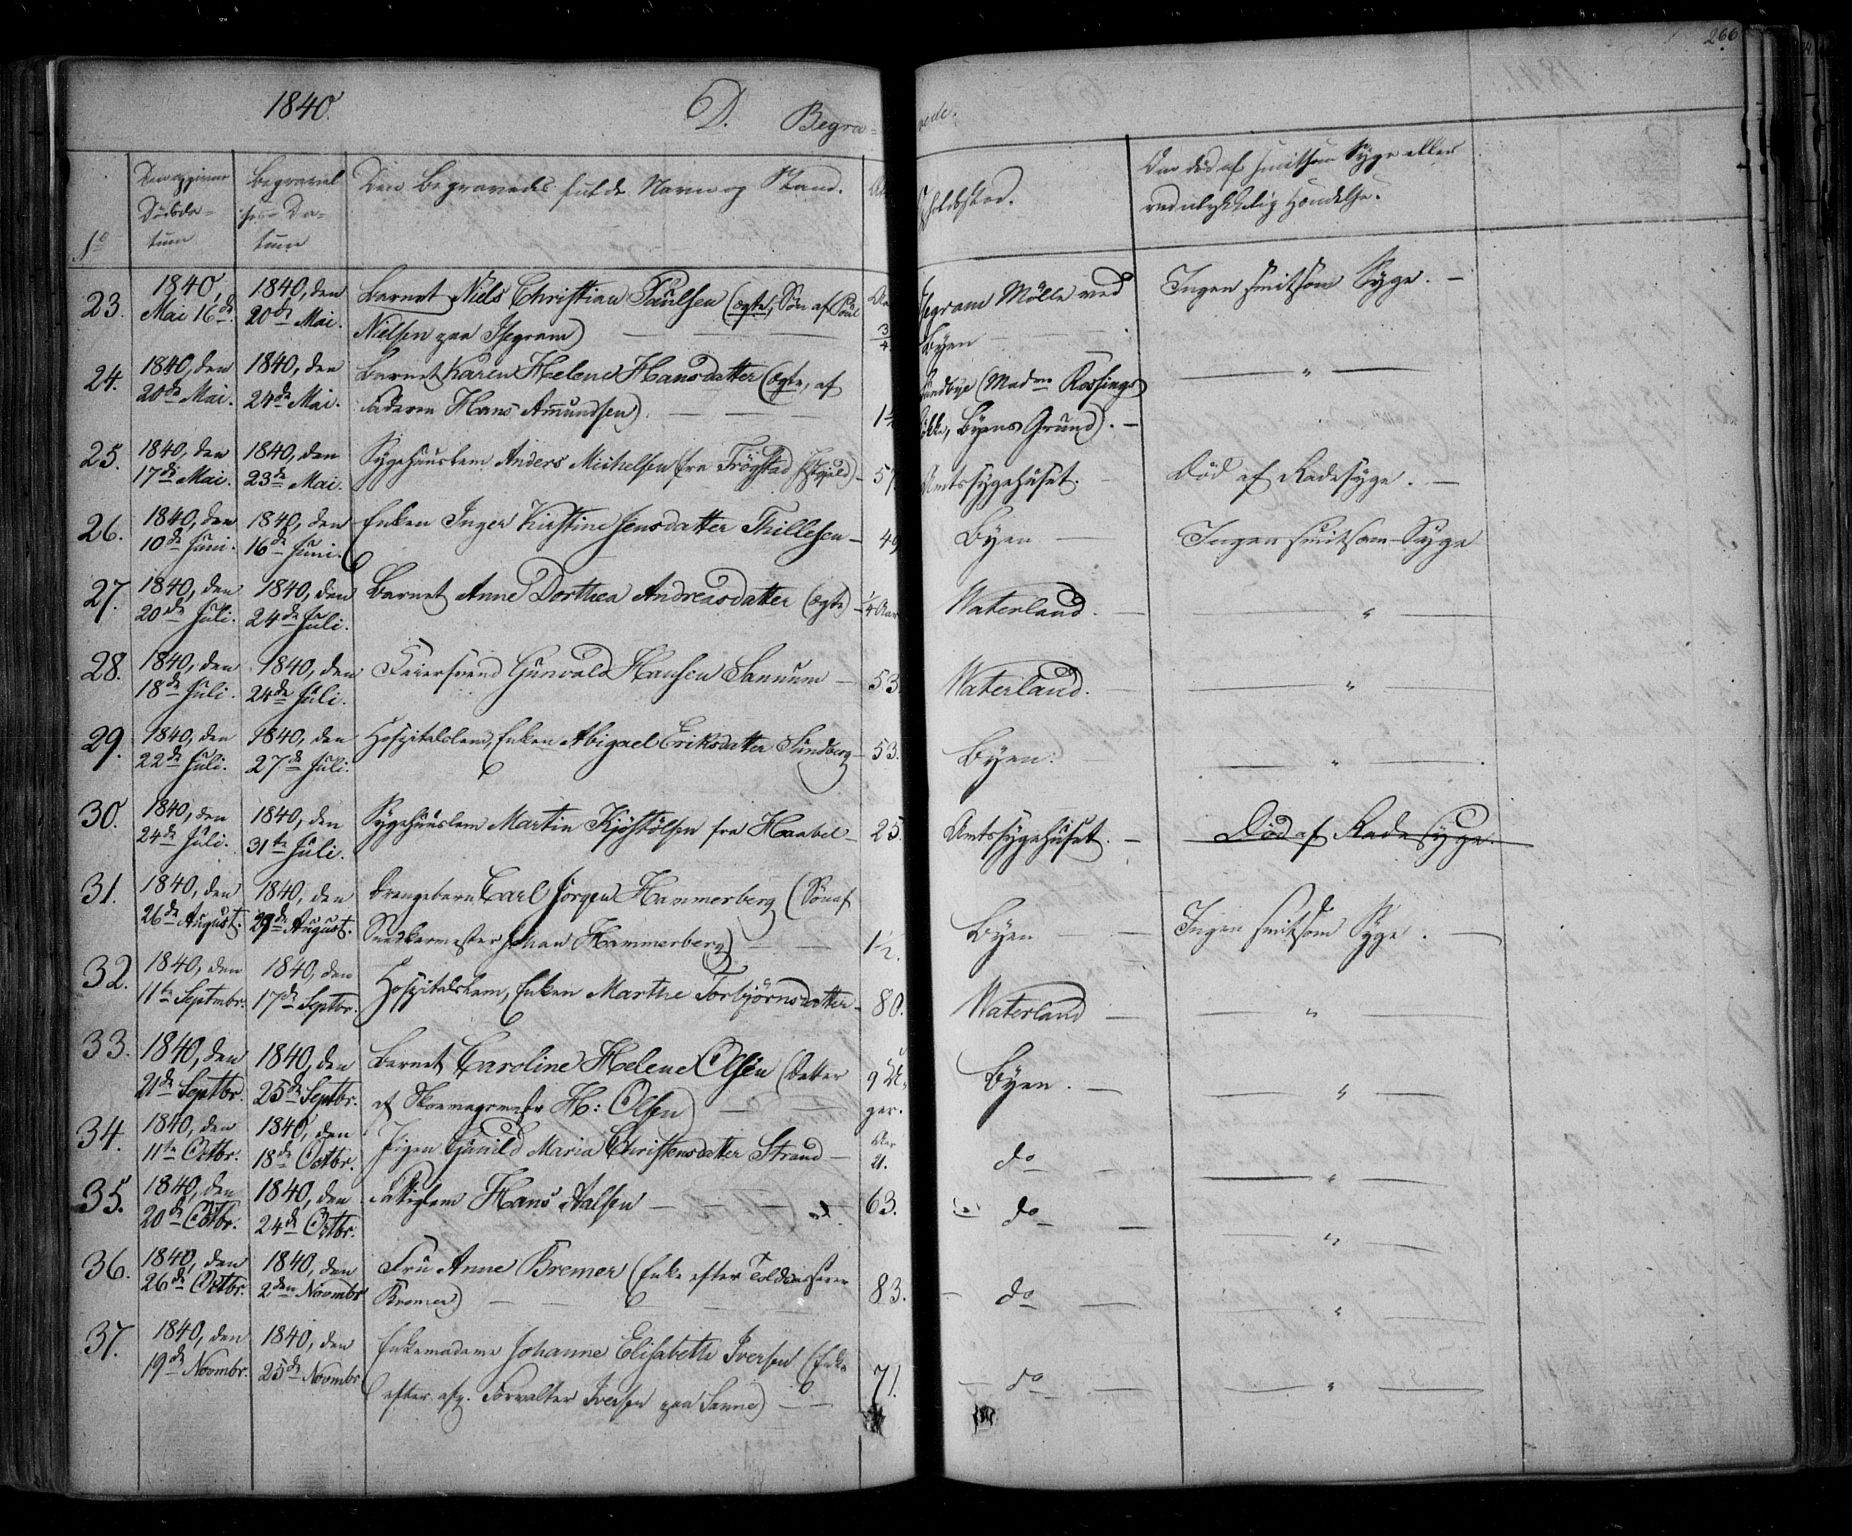 1840. D. Begra=
vede. 266
Den opgivne Døds=da=tum
Begravel ses=Da=tum
Den Begravedes fulde Navn og Stand.
Opholdssted.
Om død af smitsom Syge eller
ved ulykkelig Hændelse.
23. 1840, Mai 16de. 1840, den 20de Mai. Barnet Niels Christian Paulsen (ægte, Søn af Poul
Nielsen paa Isegram) 3/4 Isegram Mølle ved
Byen Ingen smitsom Syge. —
24. 1840, den 20de Mai. 1840, den 24de Mai. Barnet Karen Helene Hansdatter (ægte, af
Faderen Hans Amundsen). — Sandbye (Madme Rossings
Løkke, Byens Grund). — — " —
25. 1840, den 17de Mai. 1840, den 23de Mai. Sygehuuslem Anders Michelsen fra Trøgstad — 57 Amtssygehuset. Død af Radesyge. —
26. 1840, den 10de Juni. 1840, den 16de Juni. Enken Inger Kirstine Jensdatter Thillesen — 49 Byen — Ingen smitsom Syge
27. 1840, den 20de Juli. 1840, den 24de Juli. Barnet Anne Dorthea Andreasdatter (ægte) — 1/4 Aar Waterland. — — "
28. 1840, den 18de Juli. 1840, den 24de Juli. Feiersvend Gunvald Hansen Sannum — 53. Waterland. — — " —
29. 1840, den 22de Juli. 1840, den 27de Juli. Hospitalslem, Enken Abigael Eriksdatter Sundberg — 53. Byen. — — " —
30. 1840, den 24de Juli. 1840, den 31te Juli. Sygehuuslem Martin Kjøstølsen fra Haabel — 25. Amtssygehuset. — Død af Radesyge.
31. 1840, den 26de August. 1840, den 29de August. Drengebarn Carl Jørgen Hammerberg (Søn af
Snedkermester Johan Hammerberg) — 1 1/2. Byen — Ingen smitsom Syge. —
32. 1840, den 11te Septmbr. 1840, den 17de Septbr. Hospitalslem, Enken Marthe Torbjørnsdatter — 80. Waterland — — " —
33. 1840, den 21de Septbr. 1840, den 25de Septbr. Barnet Caroline Helene Olsen (Datter
af Skomagermester H: Olsen) — 9 Uger. Byen. — — " —
34. 1840, den 11te Octbr. 1840, den 18de Octbr. Pigen Gunild Maria Christensdatter Strand — Aar 21. do — — " —
35. 1840, den 20de Octbr. 1840, den 24de Octbr. Fattiglem Hans Aalsen — 63. do — — " —
36. 1840, den 26de Octbr. 1840, den 2den Novmbr Fru Anne Bremer (Enke efter Toldcasserer
Bremer) — 83. — do — — " —
37. 1840, den 19de Novmbr. 1840, den 25de Novmbr Enkemadame Johanne Elisabeth Iversen (Enke
efter afg. Forvalter Iversen paa Sanne) — 71. — do — — " —